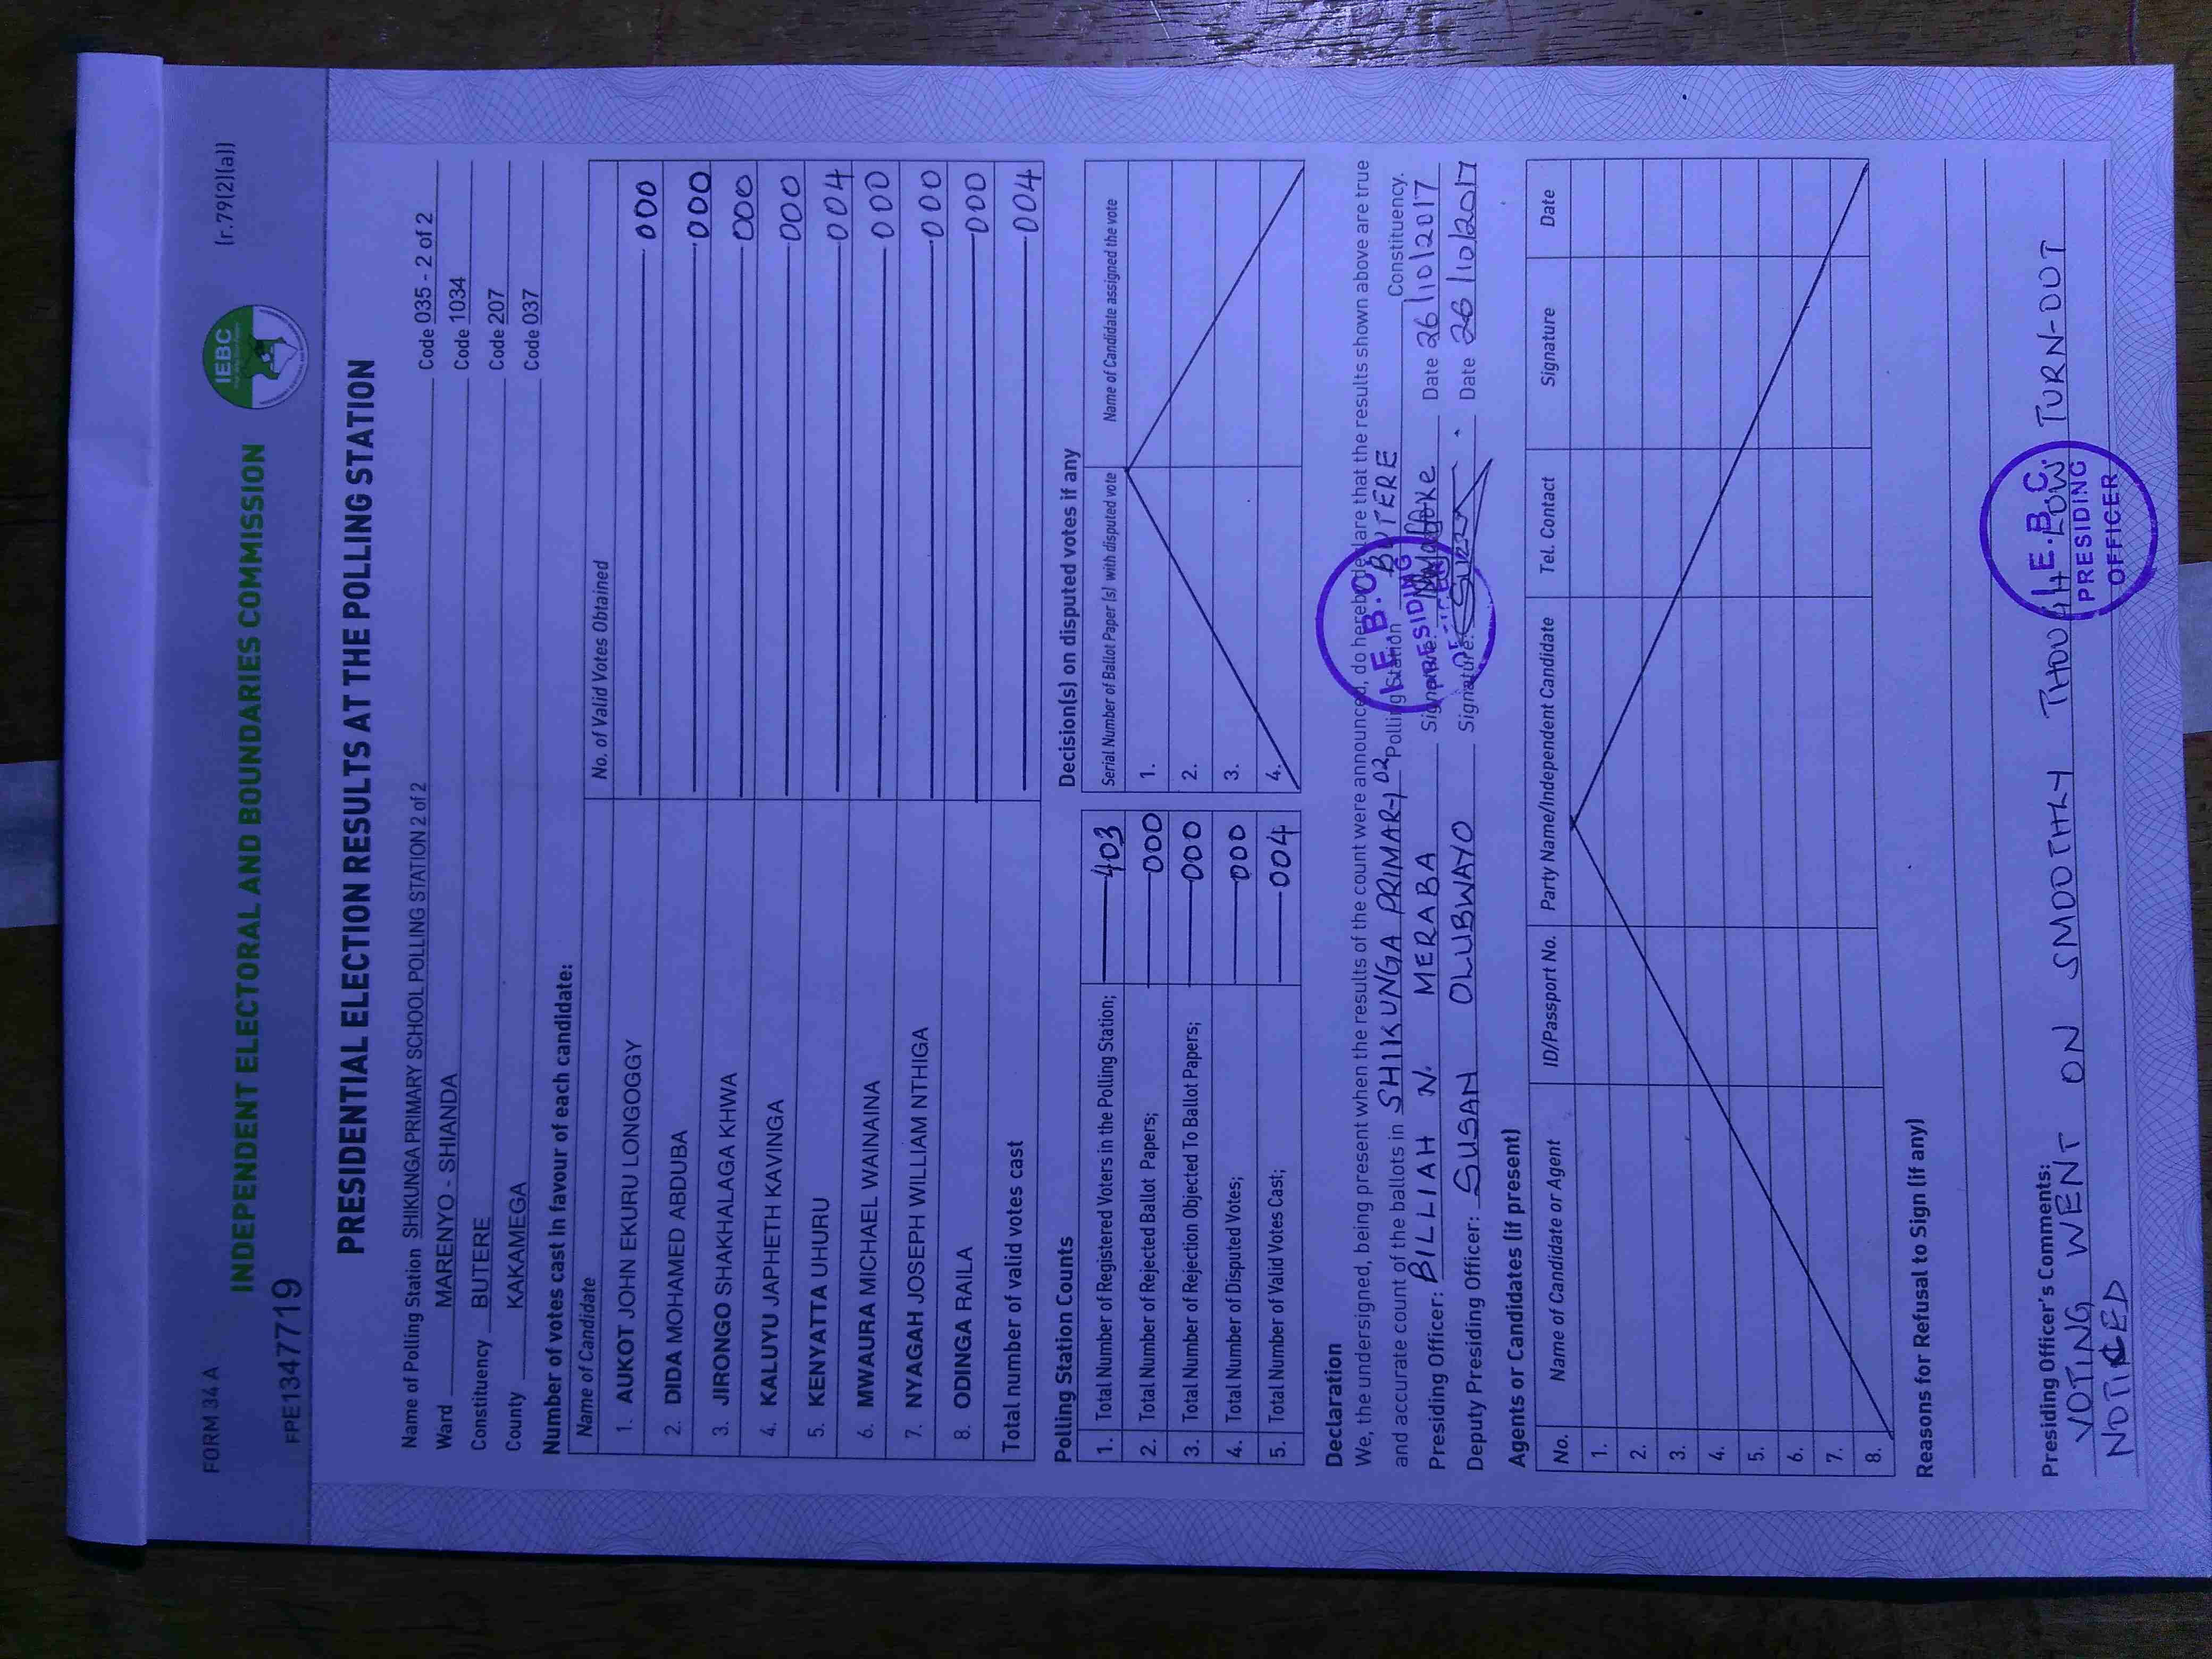 FORM 34 A
[r.79(2)(a)]
INDEPENDENT ELECTORAL AND BOUNDARIES COMMISSION
IEBC
FPE1347719
PRESIDENTIAL ELECTION RESULTS AT THE POLLING STATION
Name of Polling Station SHIKUNGA PRIMARY SCHOOL POLLING STATION 2 of 2 Code 035 - 2 of 2
Ward MARENYO - SHIANDA Code 1034
Constituency BUTERE Code 207
County KAKAMEGA Code 037
Number of votes cast in favour of each candidate:
Name of Candidate No. of Valid Votes Obtained
1. AUKOT JOHN EKURU LONGOGGY 000
2. DIDA MOHAMED ABDUBA 000
3. JIRONGO SHAKHALAGA KHWA 000
4. KALUYU JAPHETH KAVINGA 000
5. KENYATTA UHURU 004
6. MWAURA MICHAEL WAINAINA 000
7. NYAGAH JOSEPH WILLIAM NTHIGA 000
8. ODINGA RAILA 000
Total number of valid votes cast 004
Polling Station Counts
1. Total Number of Registered Voters in the Polling Station; 403
2. Total Number of Rejected Ballot Papers; 000
3. Total Number of Rejection Objected To Ballot Papers; 000
4. Total Number of Disputed Votes; 000
5. Total Number of Valid Votes Cast; 004
Decision(s) on disputed votes if any
Serial Number of Ballot Paper (s) with disputed vote Name of Candidate assigned the vote
1.
2.
3.
4.
Declaration
We, the undersigned, being present when the results of the count were announced, do hereby declare that the results shown above are true
and accurate count of the ballots in SHIKUNGA PRIMARY 02 Polling Station BUTERE Constituency.
Presiding Officer: BILLIAH N. MERABA Signature: Date 26/10/2017
Deputy Presiding Officer: SUSAN OLUBWAYO Signature: Date 26/10/2017
I.E.B.C.
PRESIDING
Agents or Candidates (if present)
No. Name of Candidate or Agent ID/Passport No. Party Name/Independent Candidate Tel. Contact Signature Date
1.
2.
3.
4.
5.
6.
7.
8.
Reasons for Refusal to Sign (if any)
Presiding Officer's Comments:
VOTING WENT ON SMOOTHLY THOUGH LOW TURN-OUT
NOTICED
I.E.B.C.
PRESIDING
OFFICER